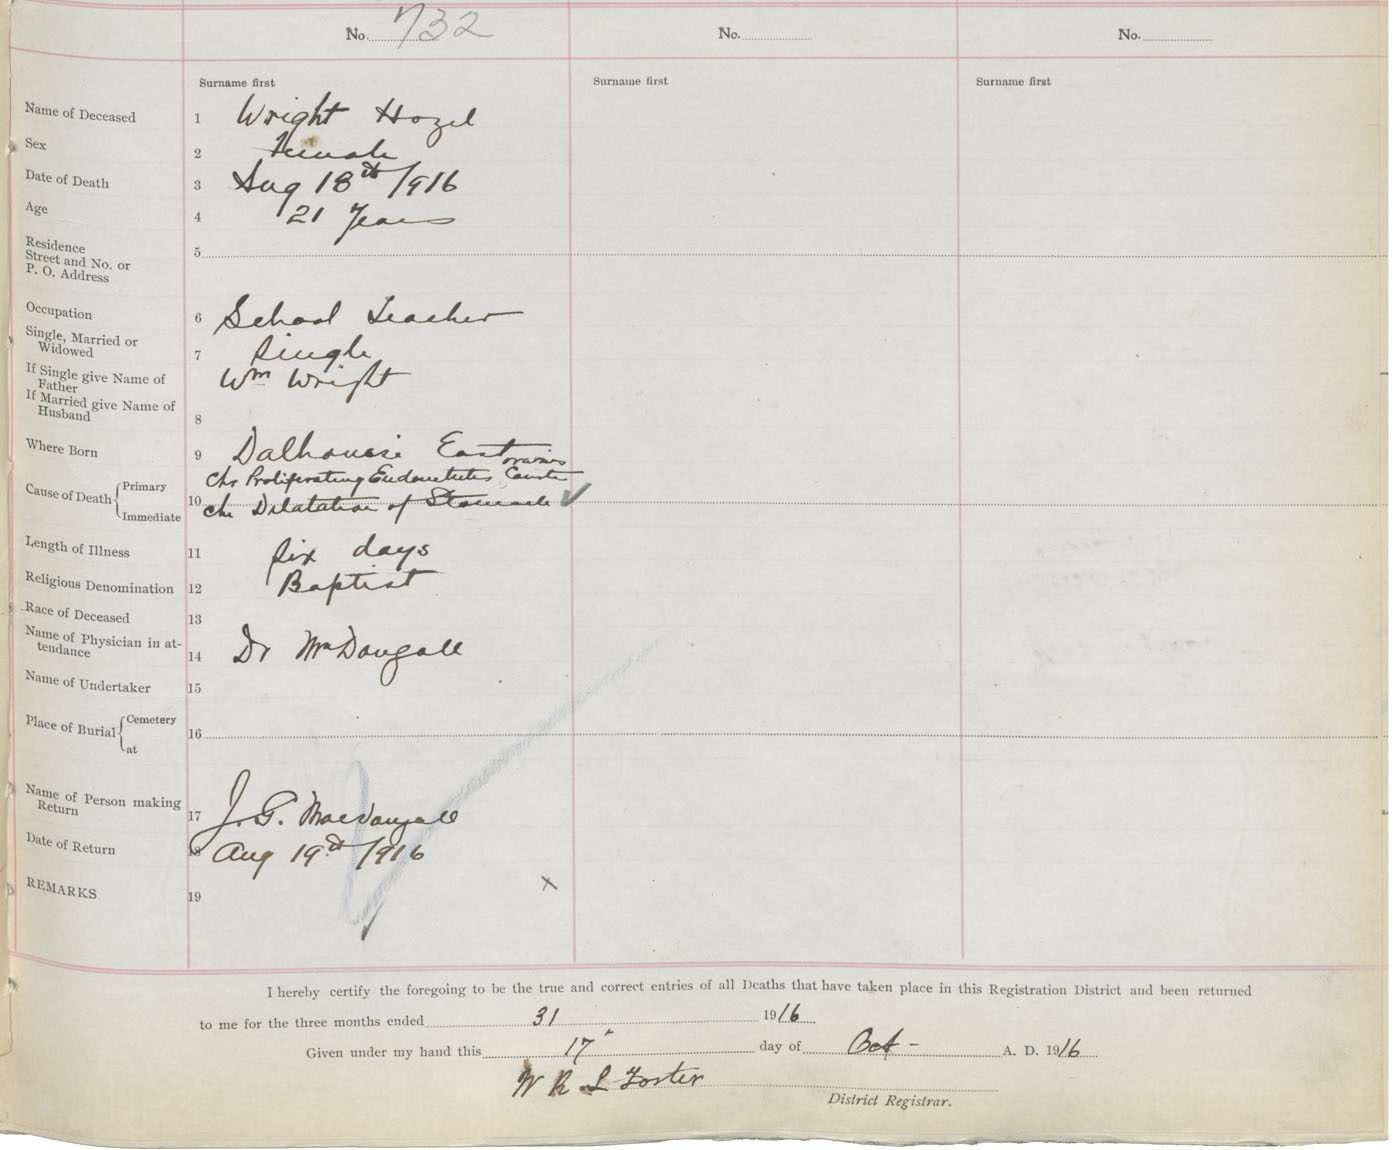 No. 732 No. No.
Surname first Surname first Surname first
Name of Deceased 1 Wright Hazel
Sex 2 Female
Date of Death 3 Aug 18th 1916
Age 4 21 Years
Residence
Street and No. or 5
P. O. Address
Occupation 6 School Teacher
Single, Married or
Widowed 7 Single
If Single give Name of Wm Wright
Father
If Married give Name of
Husband 8
Where Born 9 Dalhousie East
ovaries
Primary Chr Proliferating Endometritis
Cause of Death 10
Immediate Chr Dilatation of Stomach ✓
Length of Illness 11 Six days
Religious Denomination 12 Baptist
Race of Deceased 13
Name of Physician in at-
tendance 14 Dr McDougall
Name of Undertaker 15
Cemetery
Place of Burial 16
at
Name of Person making
Return 17 J. G. MacDougall
Date of Return 18 Aug 19th 1916
REMARKS 19 x
I hereby certify the foregoing to be the true and correct entries of all Deaths that have taken place in this Registration District and been returned
to me for the three months ended 31 1916
Given under my hand this 17" day of Oct - A. D. 1916
W R L Foster
District Registrar.